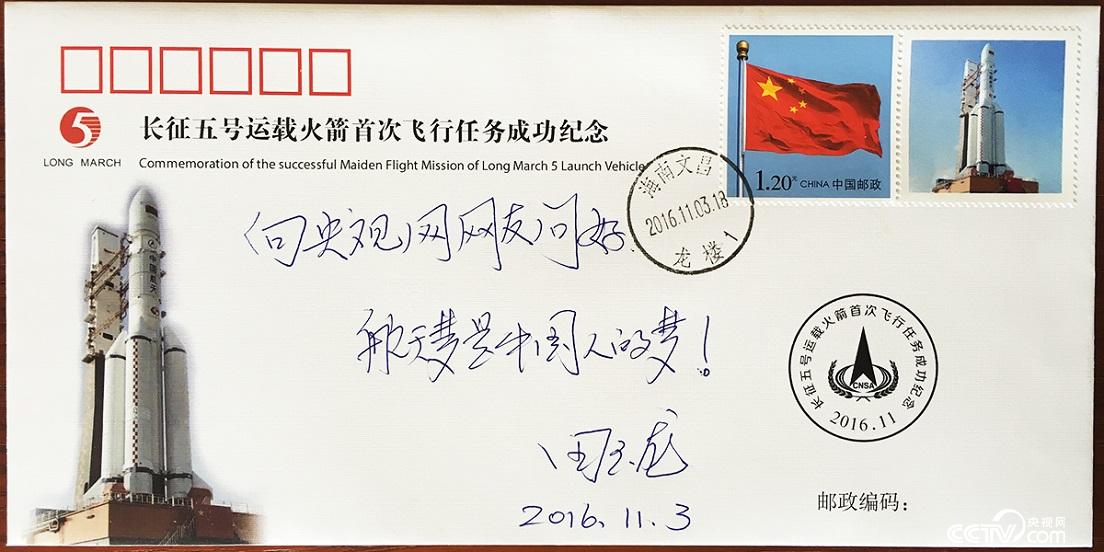 5
LONG MARCH
长征五号运载火箭首次飞行任务成功纪念
Commemoration of the successful Maiden Flight Mission of Long March 5 Launch Vehicle
1.20元 CHINA 中国邮政
海南文昌
2016.11.03.18
龙楼 1
中国航天
向央视网网友问好.
航天梦是中国人的梦!
田玉龙
2016.11.3
长征五号运载火箭首次飞行任务成功纪念
CNSA
2016.11
邮政编码:
CCTV央视网
com